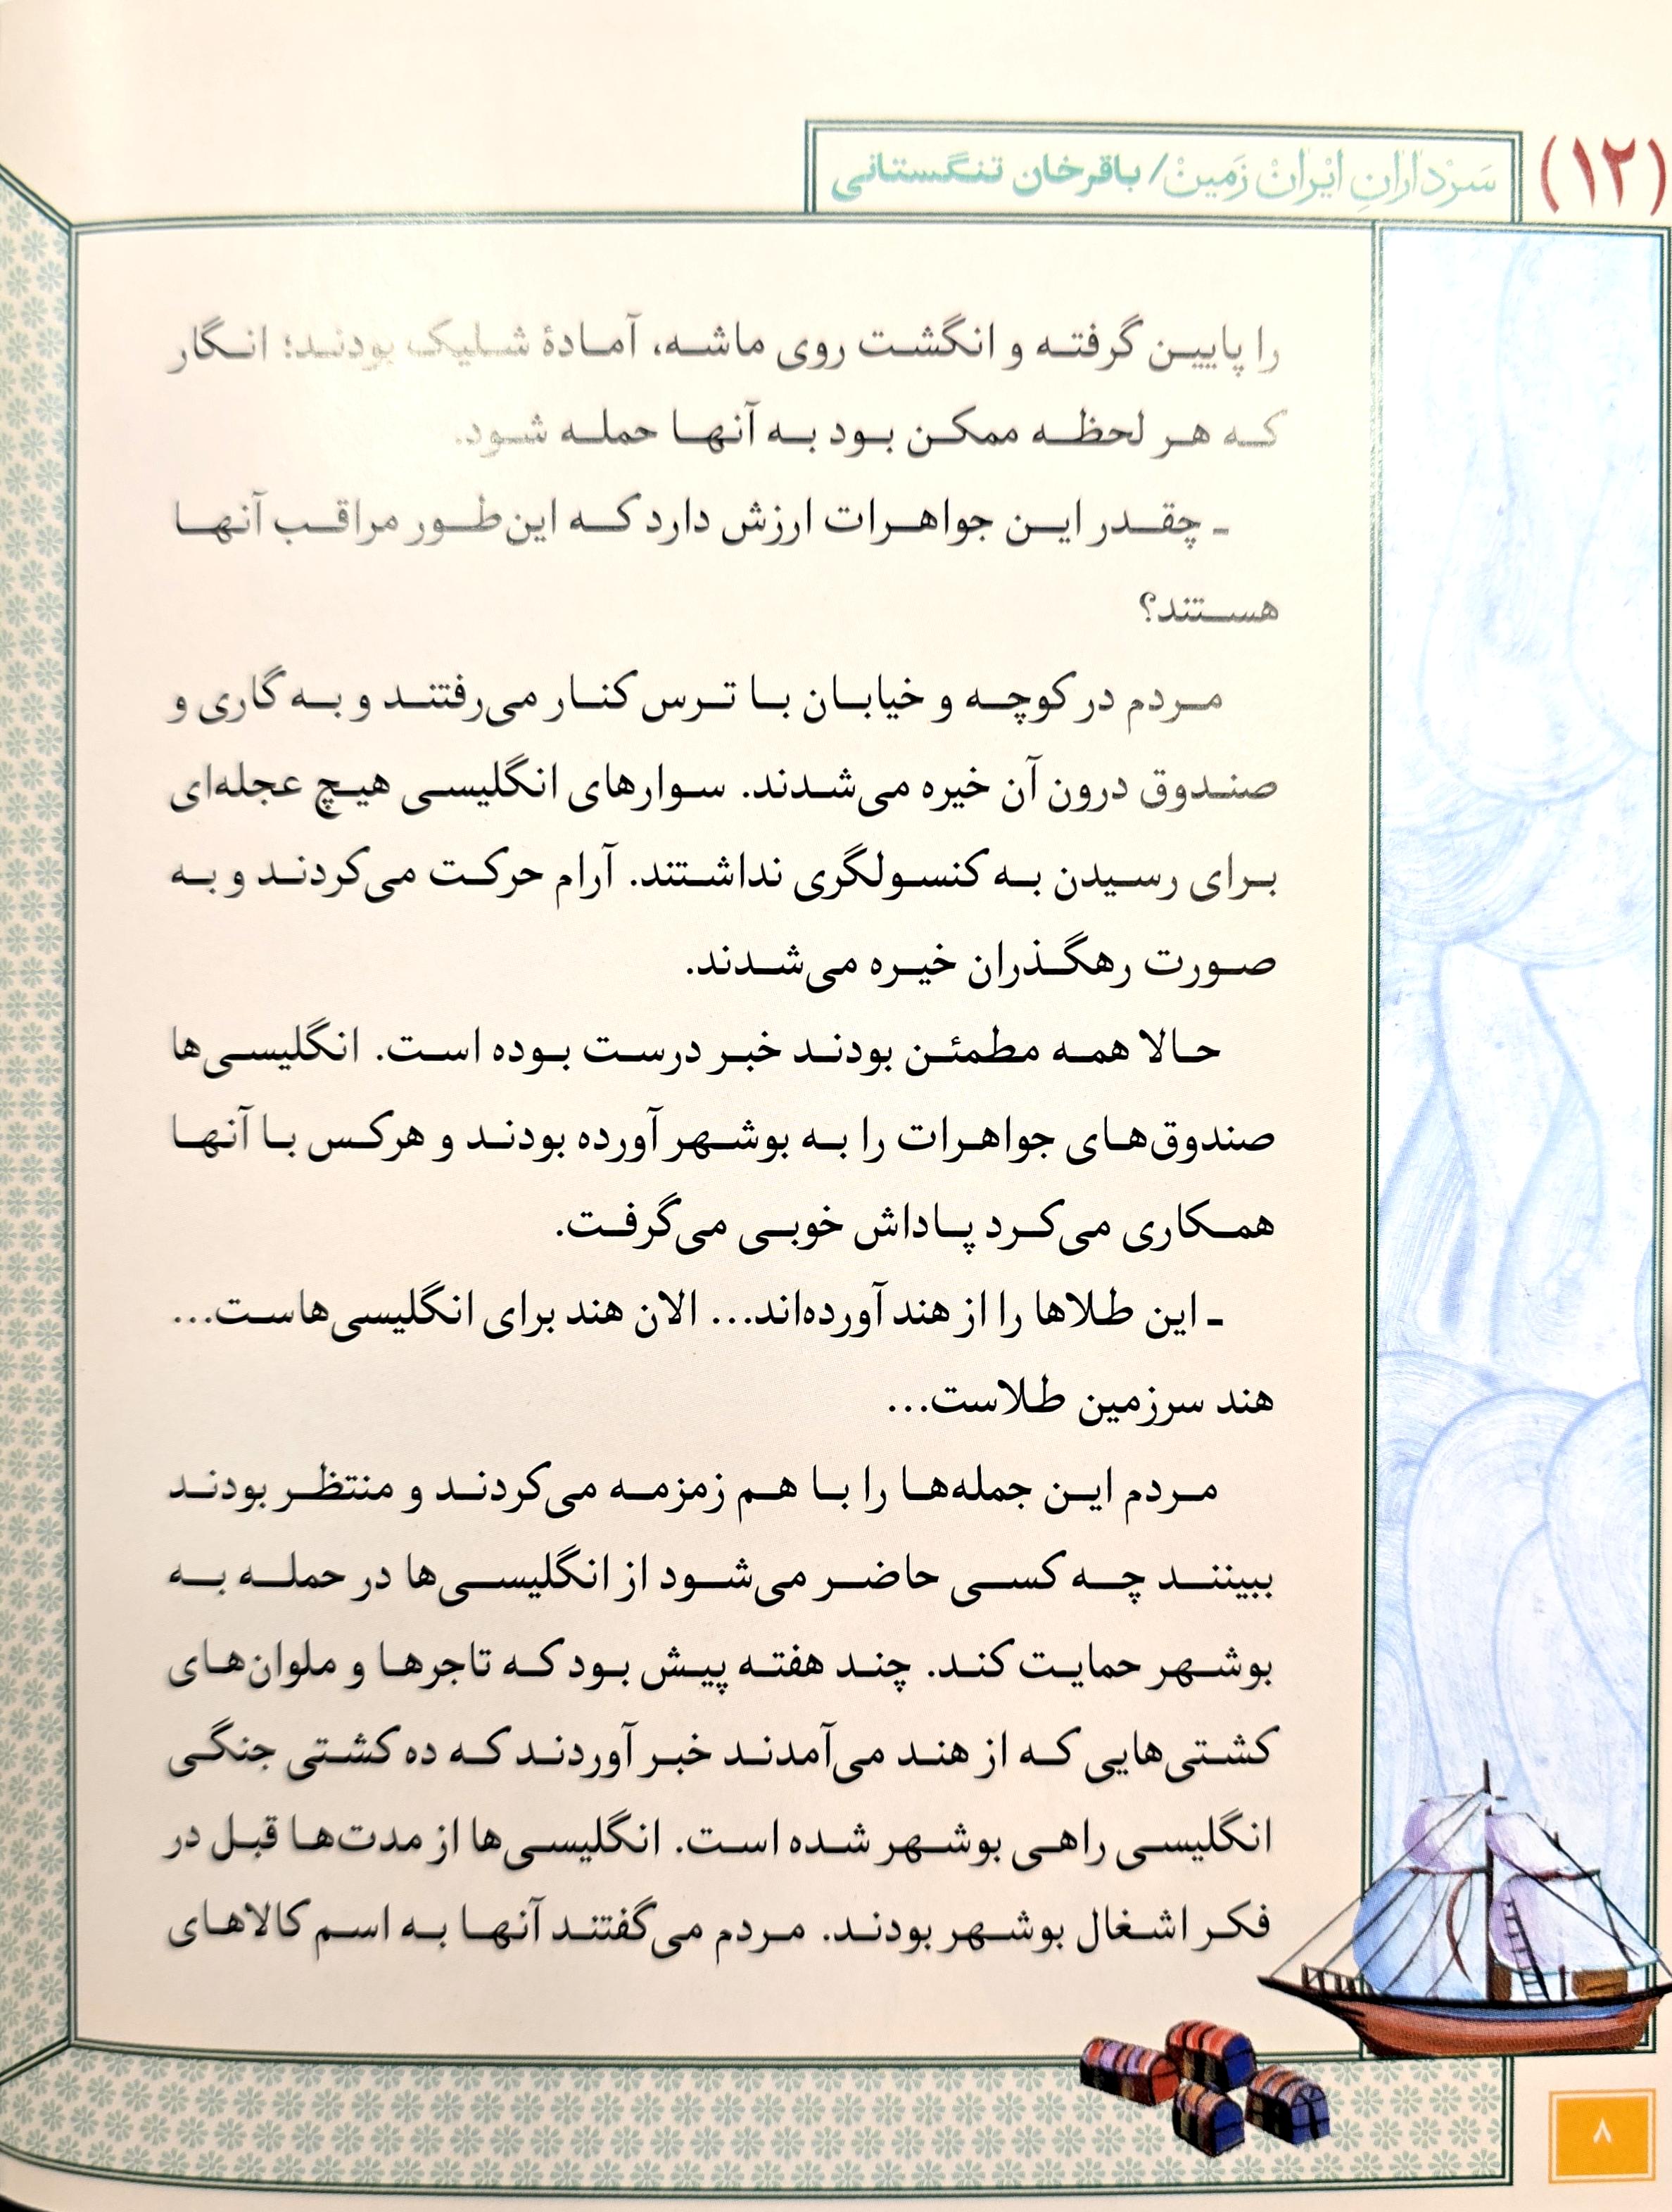 (۱۲)
سَرْدارانِ ایْرانْ زَمینْ/ باقرخان تنگستانی
را پایین گرفته و انگشت روی ماشه، آمادهٔ شلیک بودند؛ انگار
که هر لحظه ممکن بود به آنها حمله شود.
ـ چقدر این جواهرات ارزش دارد که این‌طور مراقب آنها
هستند؟
مردم در کوچه و خیابان با ترس کنار می‌رفتند و به گاری و
صندوق درون آن خیره می‌شدند. سوارهای انگلیسی هیچ عجله‌ای
برای رسیدن به کنسولگری نداشتند. آرام حرکت می‌کردند و به
صورت رهگذران خیره می‌شدند.
حالا همه مطمئن بودند خبر درست بوده است. انگلیسی‌ها
صندوق‌های جواهرات را به بوشهر آورده بودند و هرکس با آنها
همکاری می‌کرد پاداش خوبی می‌گرفت.
ـ این طلاها را از هند آورده‌اند... الان هند برای انگلیسی‌هاست...
هند سرزمین طلاست...
مردم این جمله‌ها را با هم زمزمه می‌کردند و منتظر بودند
ببینند چه کسی حاضر می‌شود از انگلیسی‌ها در حمله به
بوشهر حمایت کند. چند هفته پیش بود که تاجرها و ملوان‌های
کشتی‌هایی که از هند می‌آمدند خبر آوردند که ده کشتی جنگی
انگلیسی راهی بوشهر شده است. انگلیسی‌ها از مدت‌ها قبل در
فکر اشغال بوشهر بودند. مردم می‌گفتند آنها به اسم کالاهای
۸